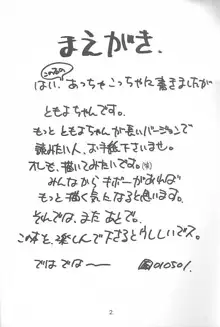 まえがき.
この本の
はい、あっちゃこっちゃに書きましたが
ともよちゃんです。
もっとともよちゃんが長いバージョンで
読みたい人、お手紙下さいませ。
オレも、描いてみたいです。(笑)
みんなからキボーがあれば
もっと描く気になると思います。
そんでは、またあとで。
この本を、楽しんで下さるとうれしいでス。
ではでは〜
010501.
2